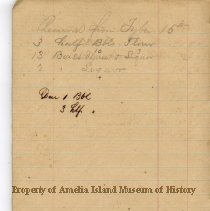 Received from Tyler 15th
3 half Bbls. Flour
13 Boxes
2 " Sugar
Due 1 Bbl
3 Hlf. "
Property of Amelia Island Museum of History